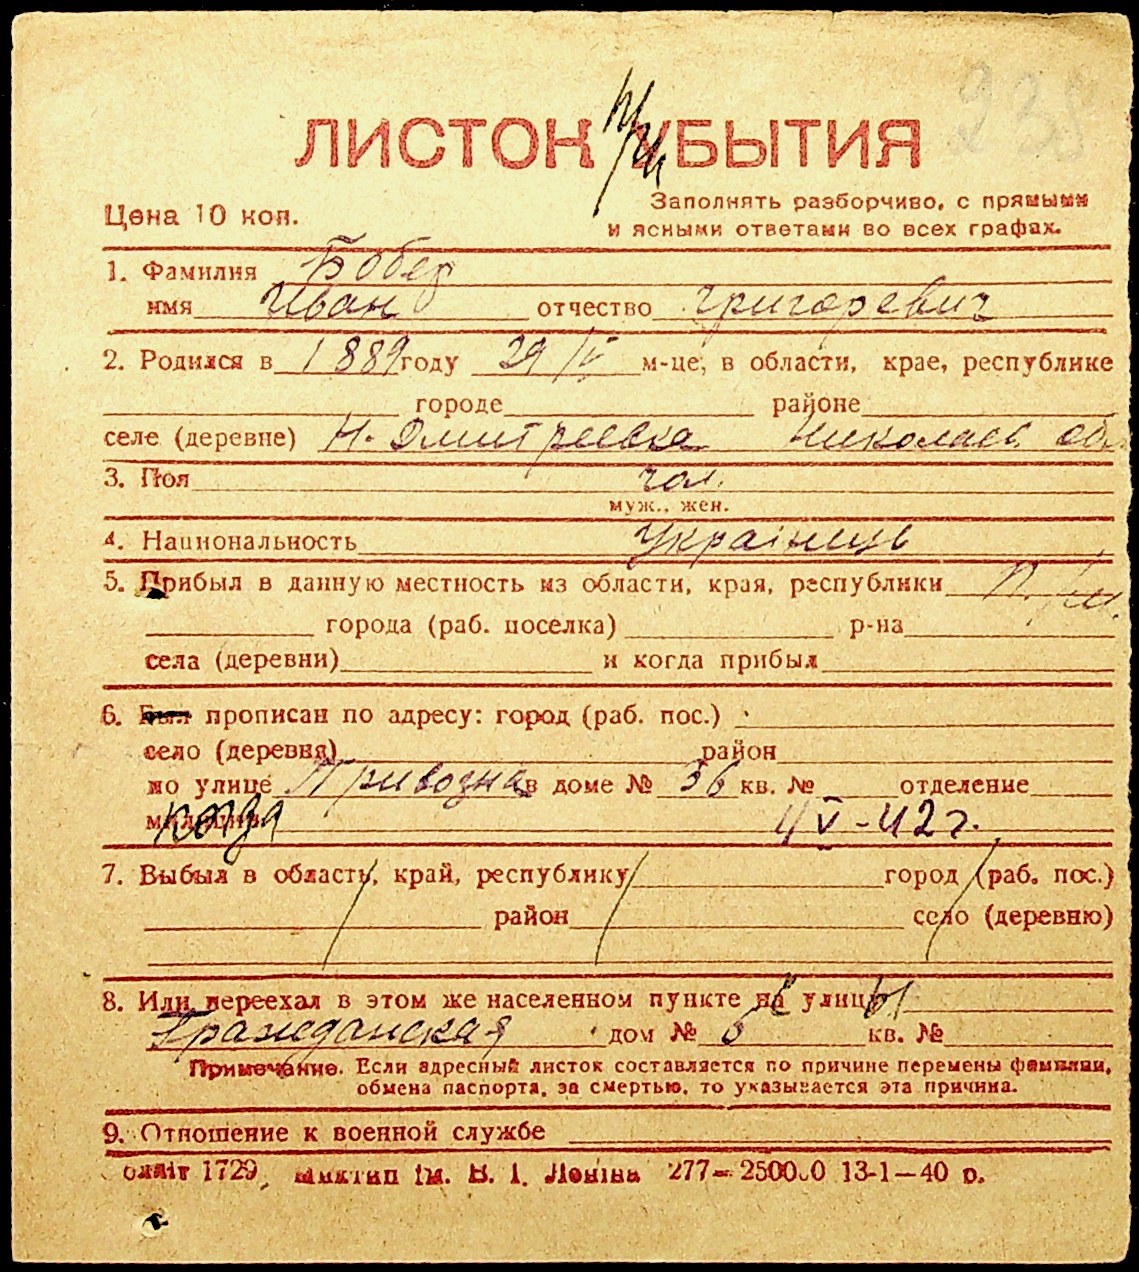 238
ЛИСТОК УБЫТИЯ
При
Цена 10 коп.
Заполнять разборчиво, с прямыми
и ясными ответами во всех графах.
1. Фамилия Бобер
имя Иван отчество Григоревич
2. Родился в 1889 году 29/IV м-це, в области, крае, республике
городе районе
селе (деревне) Н-Дмитриевка Николаев. обл.
3. Пол чол.
муж., жен.
4. Национальность Українець
5. Прибыл в данную местность из области, края, республики
города (раб. поселка) р-на
села (деревни) и когда прибыл
6. Был прописан по адресу: город (раб. пос.)
село (деревня) район
по улице Привозна в доме № 36 кв. № отделение
милиции когда 4/V-42 г.
7. Выбыл в область, край, республику город (раб. пос.)
район село (деревню)
8. Или переехал в этом же населенном пункте с улицы
Гражданская дом № 6 кв. №
Примечание. Если адресный листок составляется по причине перемены фамилии,
обмена паспорта, за смертью, то указывается эта причина.
9. Отношение к военной службе
1729 ім. В. І. Леніна 277—25000 13-1—40 р.